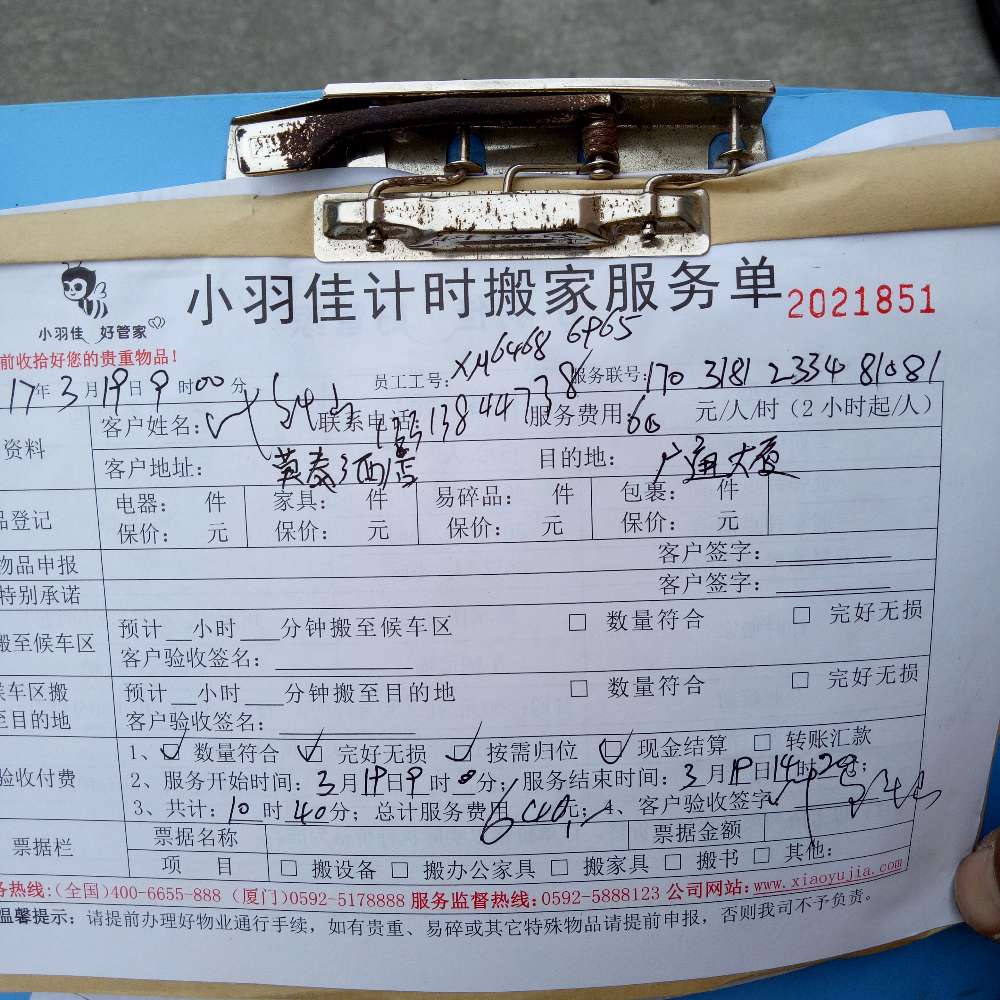 小羽佳计时搬家服务单 2021851
小羽佳 好管家
前收拾好您的贵重物品！
17年3月19日9时00分 员工工号：XM6468 6965 服务联号：170 3181 2334 81081
资料 客户姓名： 联系电话： 服务费用：60 元/人/时（2小时起/人）
客户地址： 英泰酒店 目的地： 广通大厦
品登记 电器： 件 家具： 件 易碎品： 件 包裹： 件
保价： 元 保价： 元 保价： 元 保价： 元
物品申报 客户签字：
特别承诺 客户签字：
搬至候车区 预计__小时___分钟搬至候车区 □ 数量符合 □ 完好无损
客户验收签名：
候车区搬 预计__小时___分钟搬至目的地 □ 数量符合 □ 完好无损
至目的地 客户验收签名：
验收付费 1、☑ 数量符合 ☑ 完好无损 ☑ 按需归位 ☑ 现金结算 □ 转账汇款
2、服务开始时间：3月19日9时0分；服务结束时间：3月19日14时20分；
3、共计：10时40分；总计服务费用640元；4、客户验收签字
票据栏 票据名称 票据金额
项 目 □ 搬设备 □ 搬办公家具 □ 搬家具 □ 搬书 □ 其他：
务热线：(全国)400-6655-888 (厦门)0592-5178888 服务监督热线：0592-5888123 公司网站：www.xiaoyujia.com
温馨提示：请提前办理好物业通行手续，如有贵重、易碎或其它特殊物品请提前申报，否则我司不予负责。